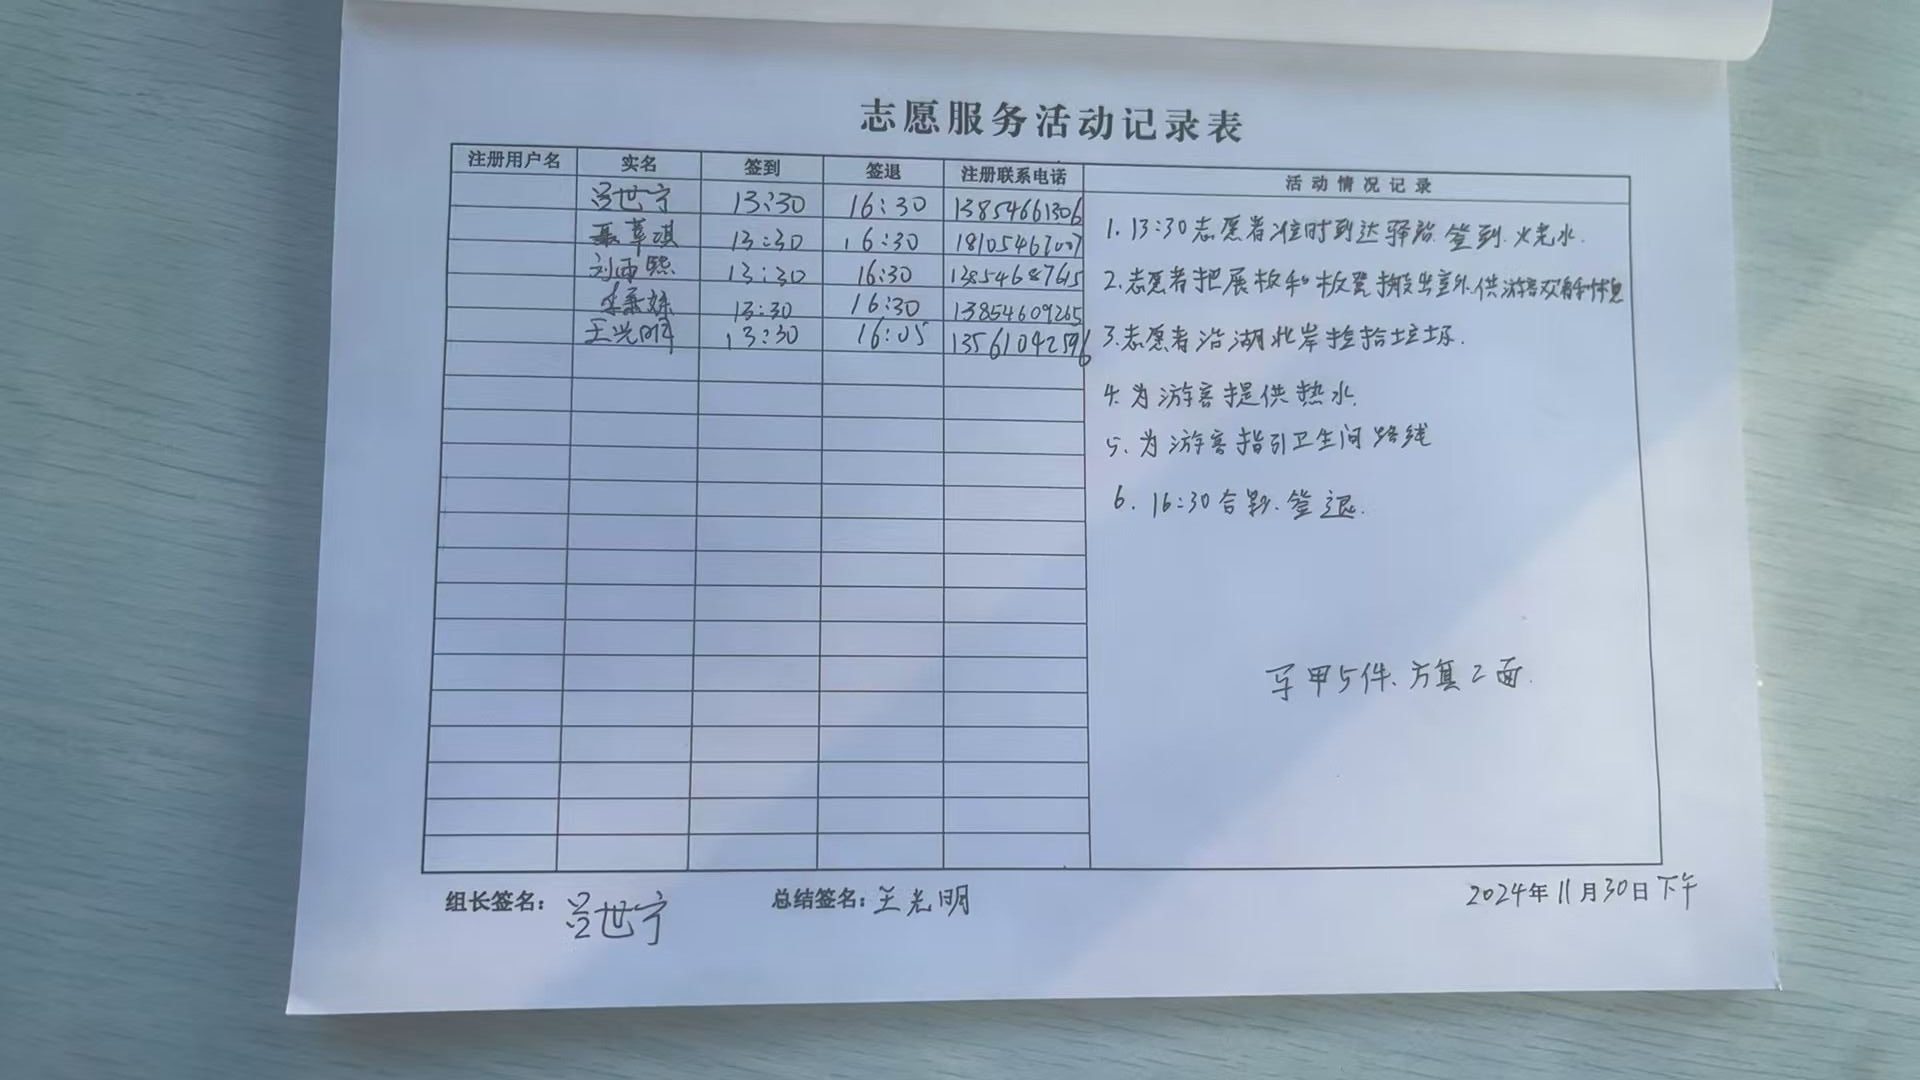 志愿服务活动记录表
注册用户名 实名 签到 签退 注册联系电话 活动情况记录
吕世宁 13:30 16:30 13854661306
聂草琪 13:30 16:30 18105467007
刘雨熙 13:30 16:30 13854687615
13:30 16:30 13854609265
王光明 13:30 16:05 13561042596
1. 13:30志愿者准时到达驿站.签到.烧水.
2.志愿者把展板和板凳搬出室外.供游客观看和休息
3.志愿者沿湖北岸捡拾垃圾.
4.为游客提供热水.
5.为游客指引卫生间路线
6. 16:30合影.签退.
马甲5件.方真2面.
组长签名: 吕世宁 总结签名: 王光明 2024年11月30日下午